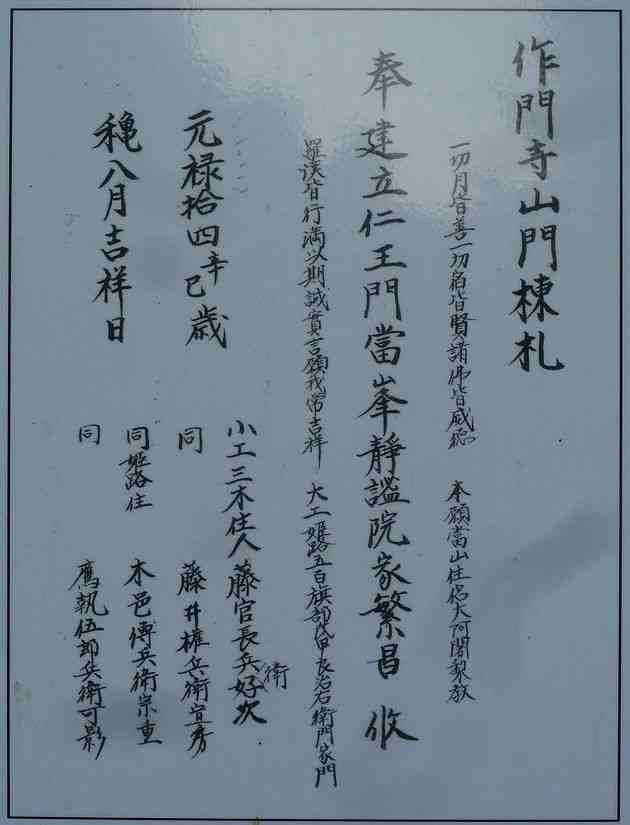 作門寺山門棟札
一切月皆善一切宿皆賢諸佛皆威徳　本願當山住侶大阿闍梨教
奉建立仁王門當峯靜謐院家繁昌　攸
羅漢皆行満以期誠實言願我常吉祥　大工姫路五百旗部 右衛門家門
元禄拾四辛巳歳　小工三木住人藤官長兵衛好次
同　藤井権兵衛宣房
穐八月吉祥日　同姫路住　木邑傳兵衛宗重
同　鷹執伍郎兵衛可影